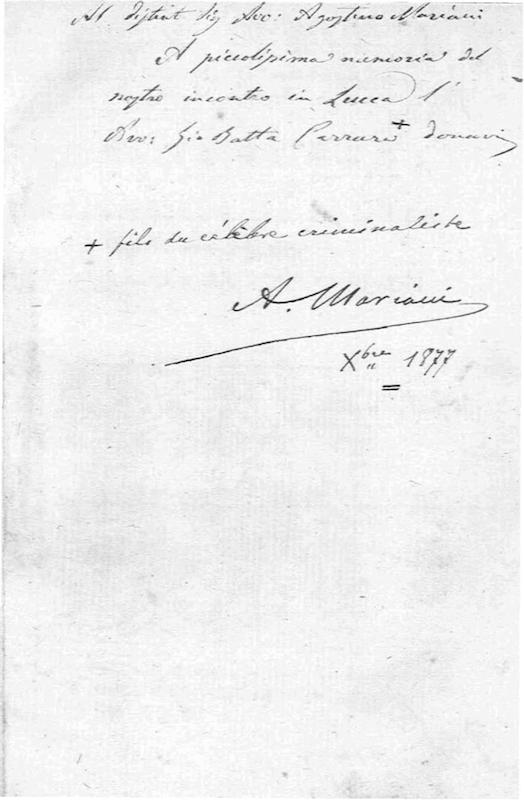 Al distint Sig Avv: Agostino Mariani
A piccolissima memoria del
nostro incontro in Lucca l'
Avv: Gio Batta Carrara + donava
+ fils du célèbre criminaliste
A. Mariani
Xbre 1877